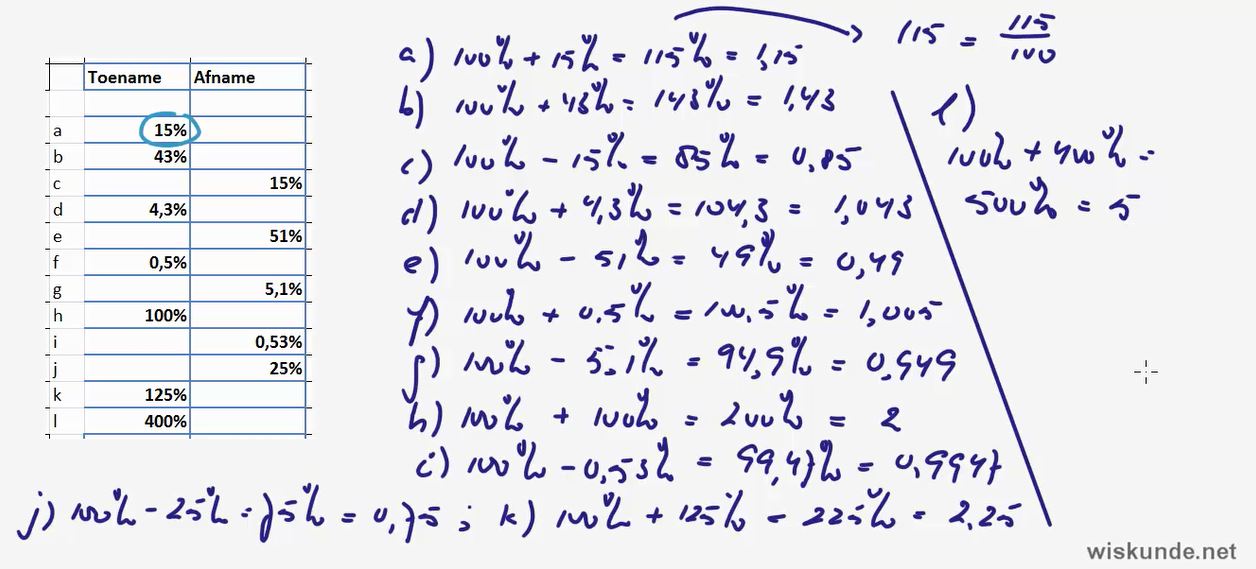 Toename Afname
a 15%
b 43%
c 15%
d 4,3%
e 51%
f 0,5%
g 5,1%
h 100%
i 0,53%
j 25%
k 125%
l 400%
a) 100% + 15% = 115% = 1,15
115 = 115/100
b) 100% + 43% = 143% = 1,43
c) 100% - 15% = 85% = 0,85
d) 100% + 4,3% = 104,3 = 1,043
e) 100% - 51% = 49% = 0,49
f) 100% + 0,5% = 100,5% = 1,005
g) 100% - 5,1% = 94,9% = 0,949
h) 100% + 100% = 200% = 2
i) 100% - 0,53% = 99,47% = 0,9947
j) 100% - 25% = 75% = 0,75 ; k) 100% + 125% = 225% = 2,25
l)
100% + 400% =
500% = 5
wiskunde.net